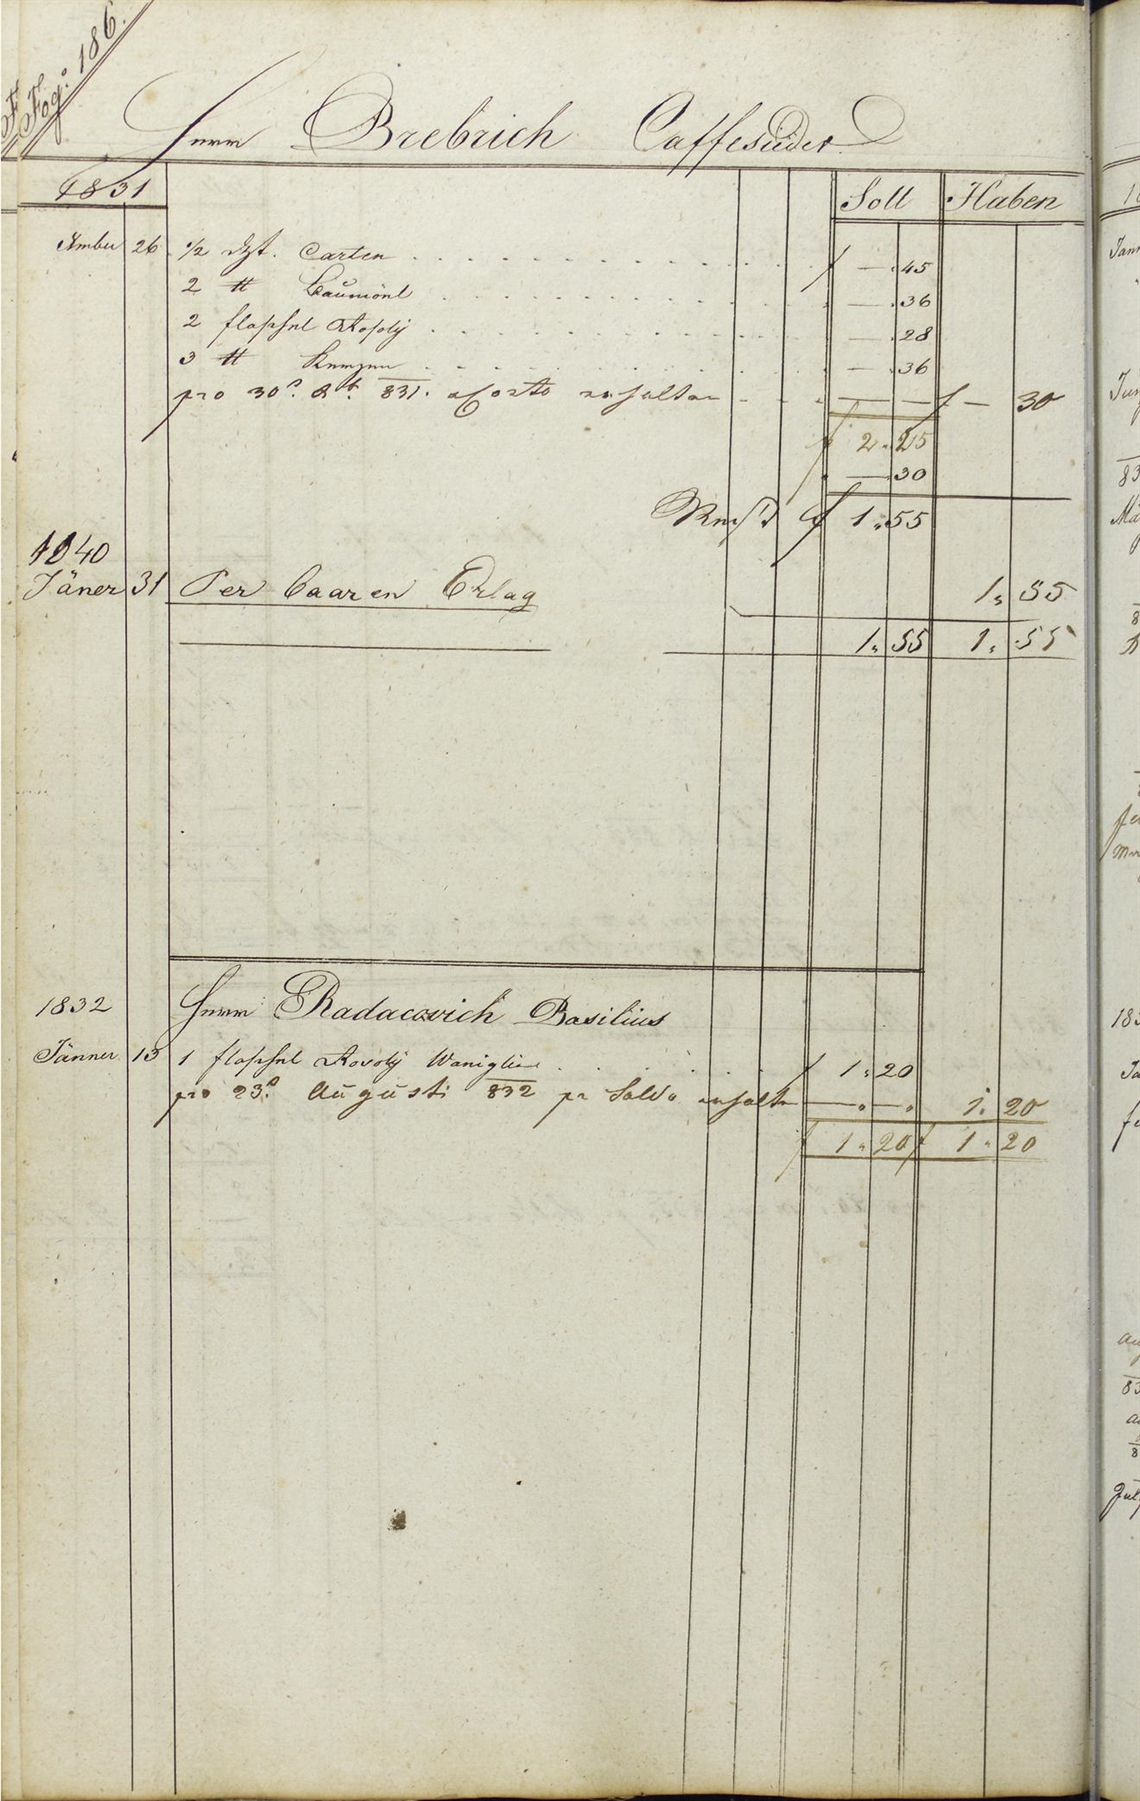 Fog: 186.
Herrn Brebrich Caffesieder
1831
Soll Haben
26 ½ dzt. Carten f — . 45
2 ℔ Baumöhl — . 36
2 flaschl Rosoly — . 28
3 ℔ Kerzen — . 36
pro 30ten 831. a Conto erhalten — — f — 30
f 2 . 25
— 30
Rest f 1 . 55
1840
Jäner 31 Per baaren Erlag 1 . 55
1 . 55 1 . 55
1832 Herrn Radacovich Basilius
Jänner 13 1 flaschl Rosoly Waniglie f 1 . 20
pro 23t Augusti 832 pr Saldo erhalten — . — . 1 . 20
f 1 . 20 f 1 . 20